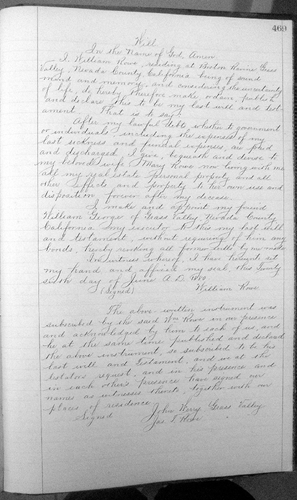 469
Will
In the Name of God, Amen
I, William Rowe residing at Boston Ravine Grass
Valley, Nevada County, California, being of sound
mind and memory, and considering the uncertainty
of life, do hereby therefore make, ordain, publish
and declare this to be my last will and test
ament. That is to say:
After my lawful debts, whether to government
or individuals including the expenses of my
last sickness and funeral expenses, are paid
and discharged, I give, bequeath and devise to
my beloved wife Mary Rowe now living with me
all my real estate personal property and all
other effects and property to her own use and
disposition forever after my decease.
I make and appoint my friend
William George of Grass Valley, Nevada County
California my executor to this my last will
and testament, without requiring of him any
bonds, hereby revoking all former wills by me made
In witness whereof, I have hereunto set
my hand and affixed my seal, this twenty
sixth day of June A.D.
(Signed) William Rowe
The above written instrument was
subscribed by the said Wm Rowe in our presence
and acknowledged by him to each of us, and
he at the same time published and declared
the above instrument, so subscribed to be his
last will and testament, and we at the
testators request, and in his presence and
in each other's presence have signed our
names as witnesses thereto together with our
places of residence.
Signed John Grass Valley
Jas.